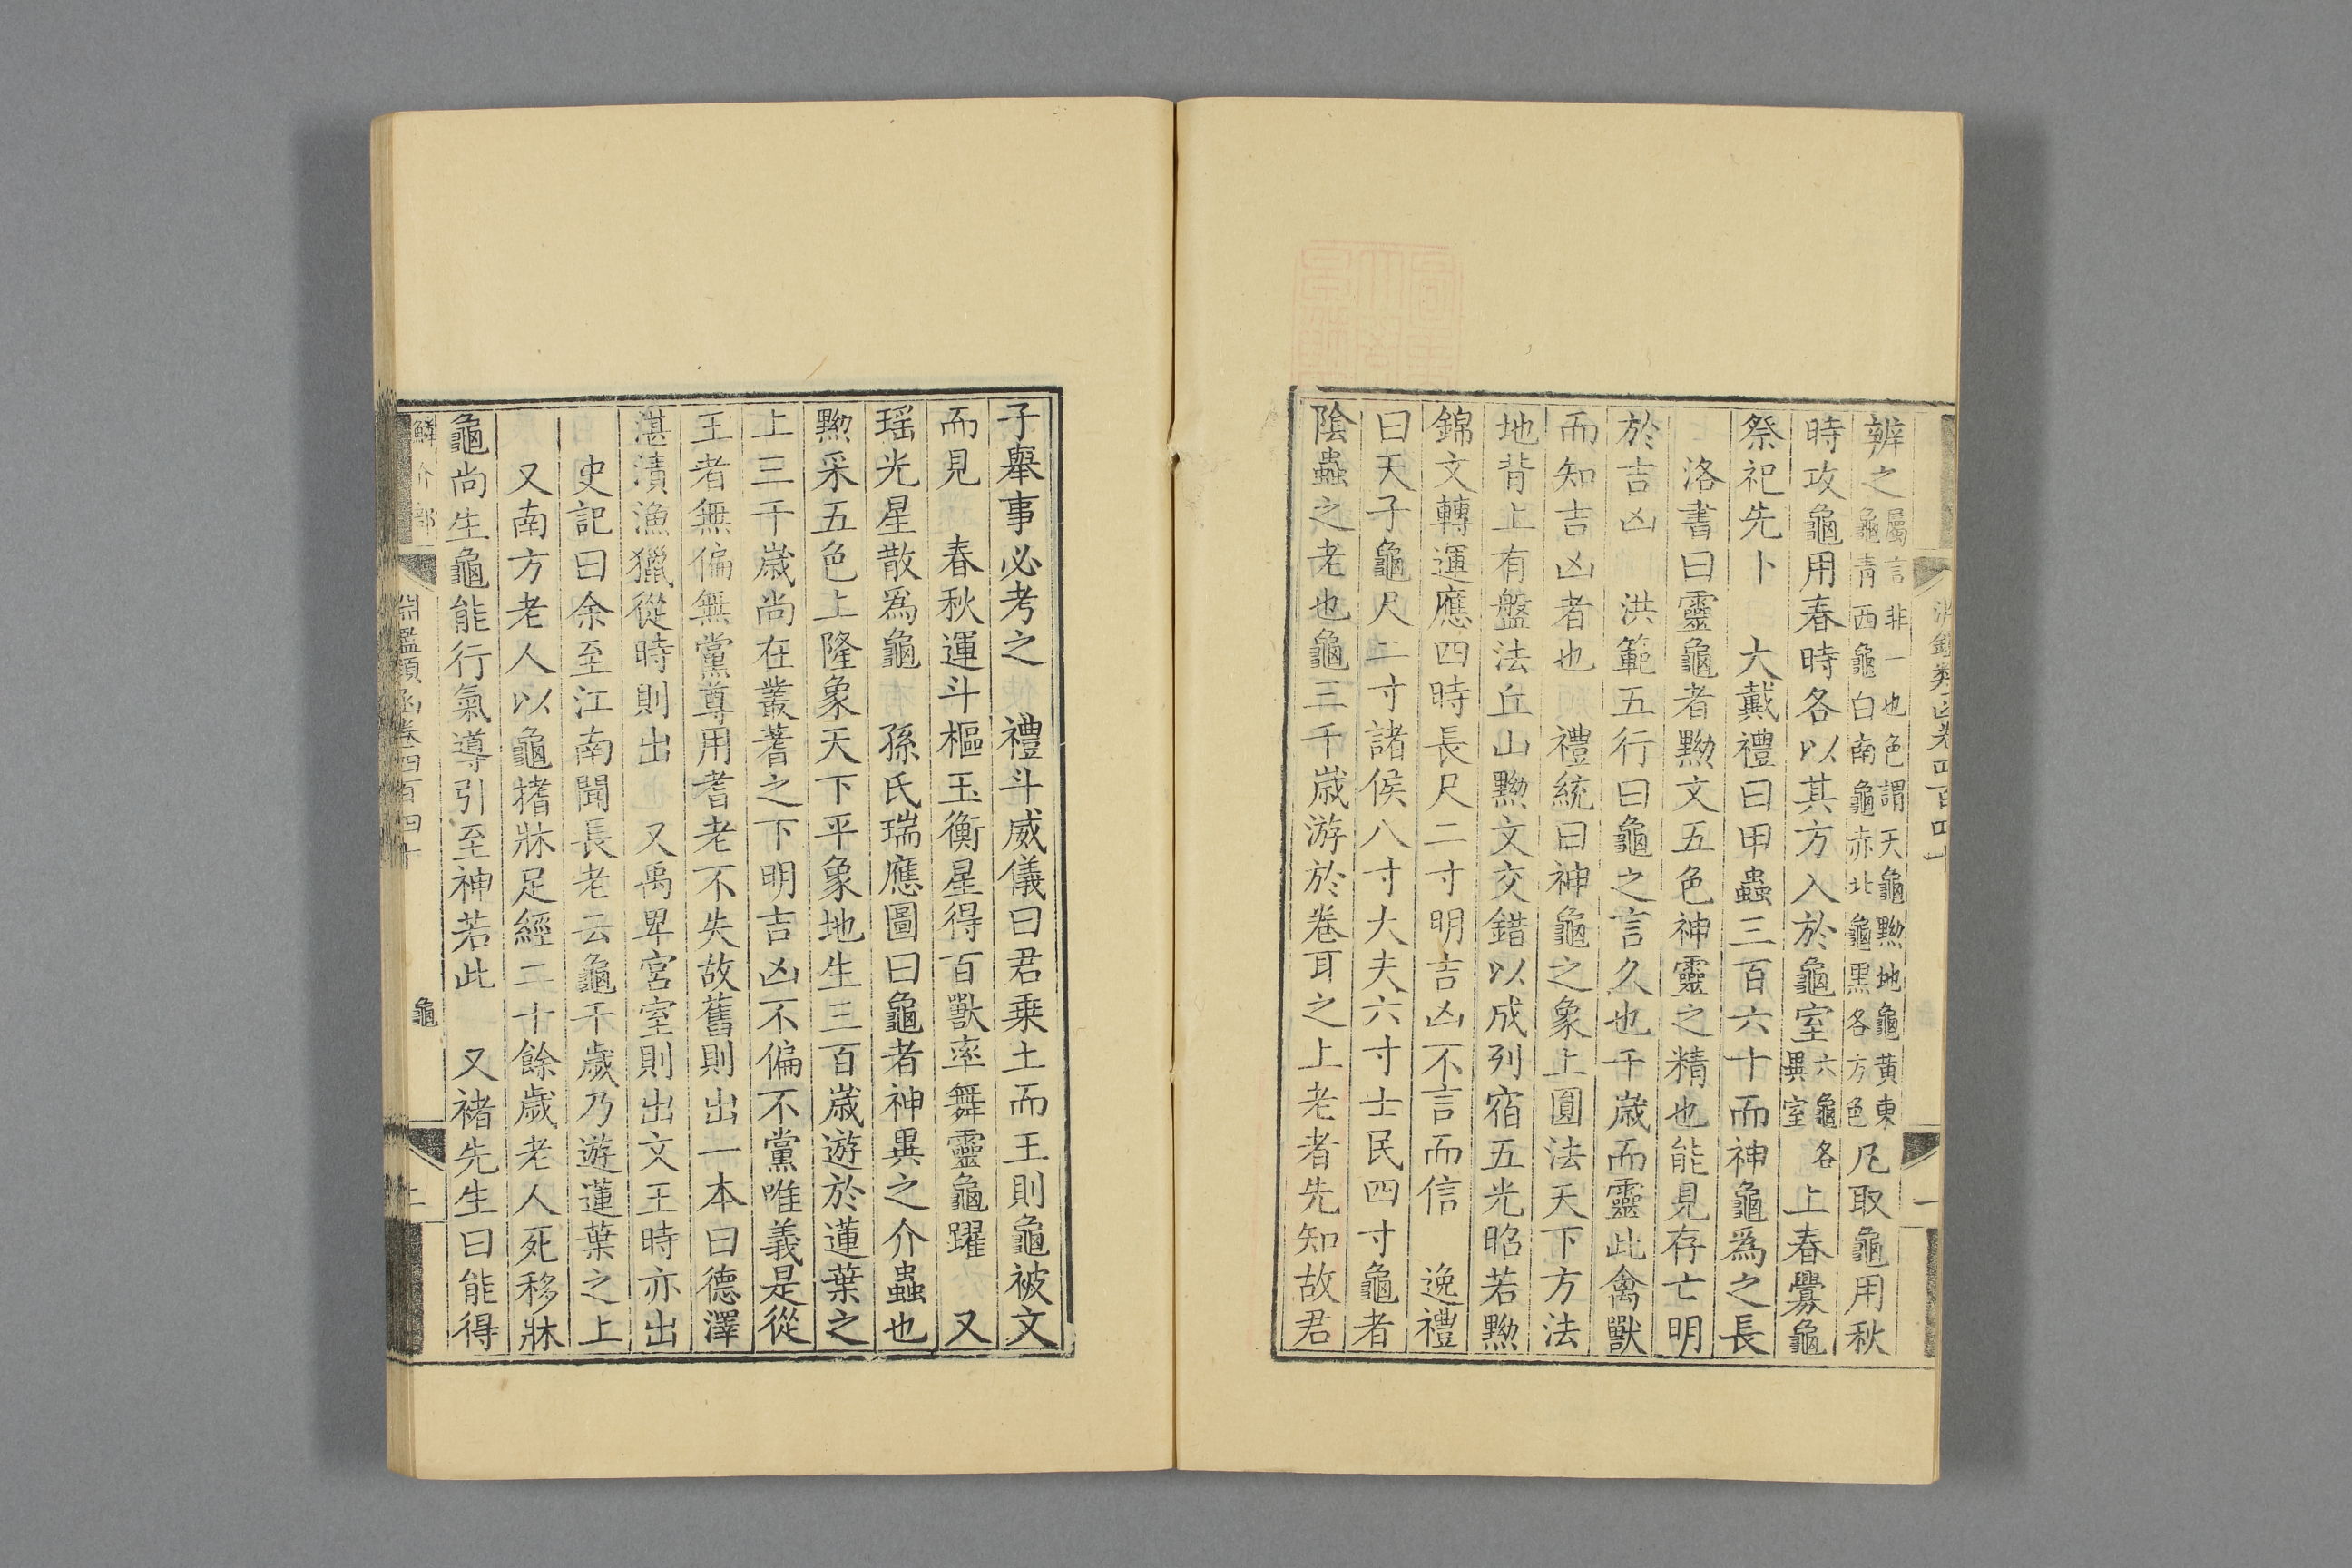 辨之屬言非一也色謂天龜黝地龜黃東龜青西龜白南龜赤北龜黑各方色凡取龜用秋
時攻龜用春時各以其方入於龜室六龜各異室上春釁龜
祭祀先卜 大戴禮曰甲蟲三百六十而神龜爲之長
洛書曰靈龜者黝文五色神靈之精也能見存亡明
於吉凶 洪範五行曰龜之言久也千歲而靈此禽獸
而知吉凶者也 禮統曰神龜之象上圓法天下方法
地背上有盤法丘山黝文交錯以成列宿五光昭若黝
錦文轉運應四時長尺二寸明吉凶不言而信 逸禮
曰天子龜尺二寸諸侯八寸大夫六寸士民四寸龜者
陰蟲之老也龜三千歲游於卷耳之上老者先知故君
子舉事必考之 禮斗威儀曰君乗土而王則龜被文
而見 春秋運斗樞玉衡星得百獸率舞靈龜躍 又
瑶光星散爲龜 孫氏瑞應圖曰龜者神異之介蟲也
黝采五色上隆象天下平象地生三百歲遊於蓮葉之
上三千歲尚在叢蓍之下明吉凶不偏不黨唯義是從
王者無偏無黨尊用耆老不失故舊則出一本曰德澤
湛漬漁獵從時則出 又禹卑宮室則出文王時亦出
史記曰余至江南聞長老云龜千歲乃遊蓮葉之上
又南方老人以龜搘牀足經二十餘歲老人死移牀
龜尚生龜能行氣導引至神若此 又褚先生曰能得
鱗介部 淵鑑類函卷四百四十 龜